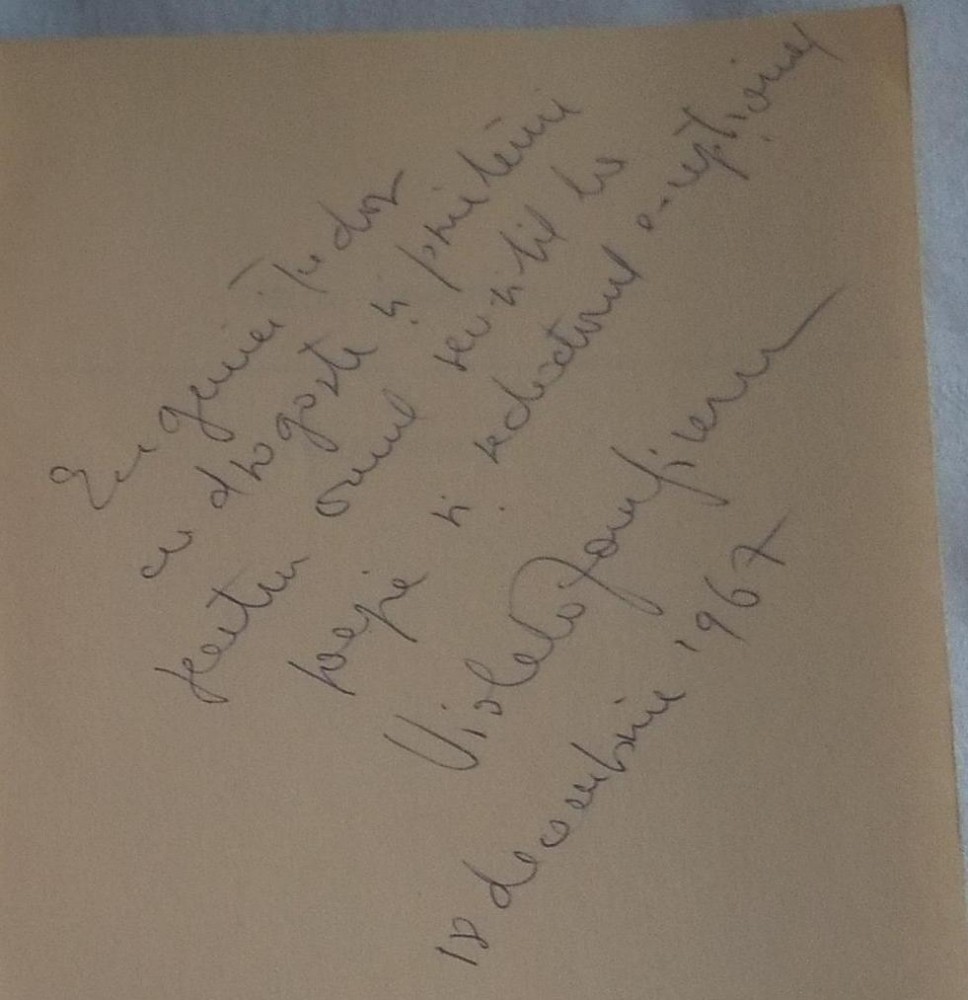 Eugeniei Tudor
cu dragoste și prietenie
pentru omul sensibil la
poezie și redactorul excepțional
Violeta Zamfirescu
18 decembrie 1967